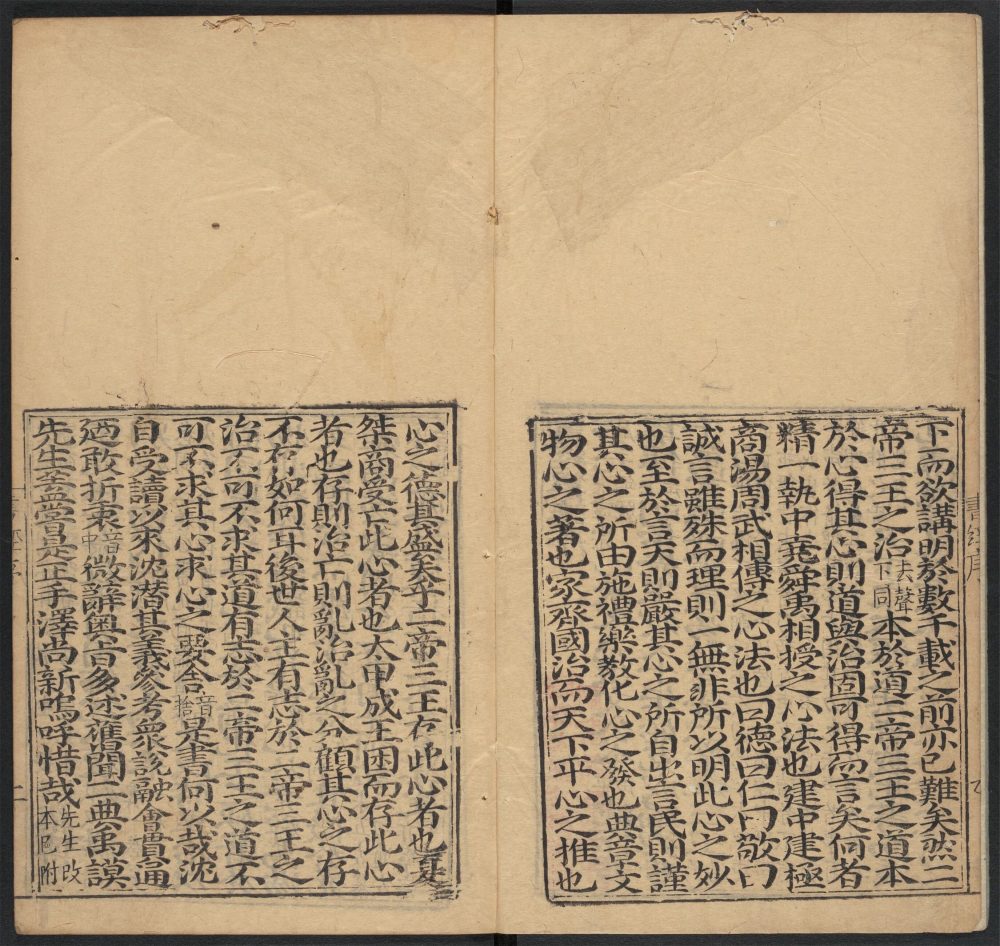 下而欲講明於數千載之前亦已難矣然二
帝三王之治去聲下同本於道二帝三王之道本
於心得其心則道與治固可得而言矣何者
精一執中堯舜禹相授之心法也建中建極
商湯周武相傳之心法也曰德曰仁曰敬曰
誠言雖殊而理則一無非所以明此心之妙
也至於言天則嚴其心之所自出言民則謹
其心之所由施禮樂教化心之發也典章文
物心之著也家齊國治而天下平心之推也
心之德其盛矣乎二帝三王存此心者也夏
桀商受亡此心者也太甲成王困而存此心
者也存則治亡則亂治亂之分顧其心之存
不存如何耳後世人主有志於二帝三王之
治不可不求其道有志於二帝三王之道不
可不求其心求心之要舍音捨是書何以哉沈
自受讀以來沈潜其義參考衆說融會貫通
廼敢折衷音中微辭奥旨多述舊聞二典禹謨
先生蓋嘗是正手澤尚新嗚呼惜哉先生改本已附